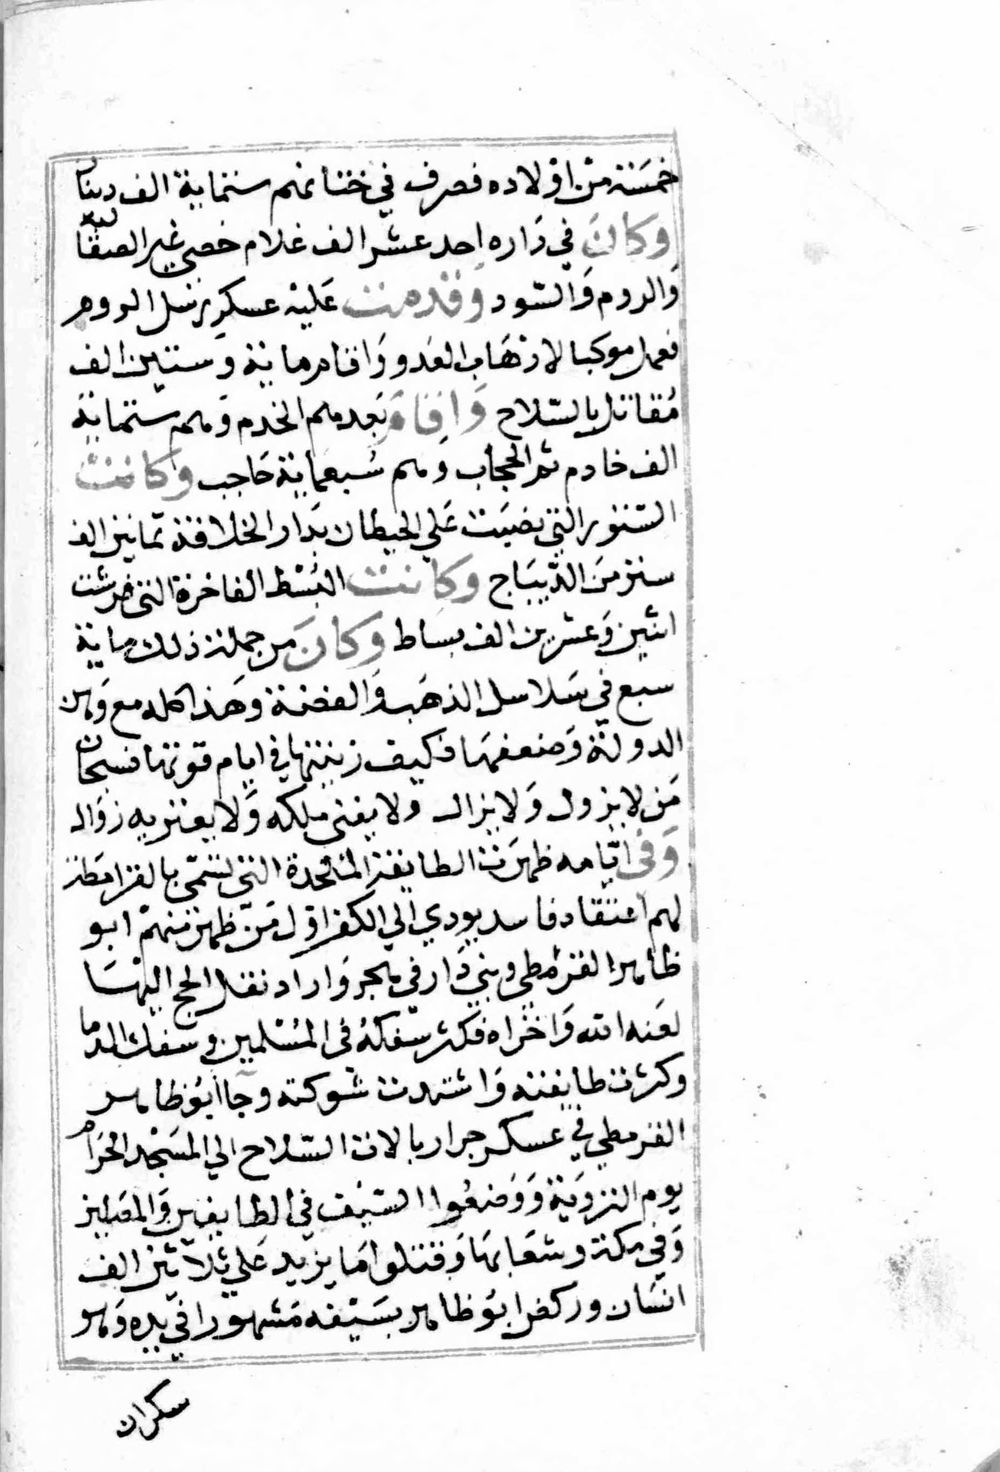 خمسة من اولاده فصرف في ختانهم ستماية الف دينار
وكان في داره احد عشر الف غلام خصي غير الصقالبة
والروم والسود وقدمت عليه عسكر رسل الروم
فعمل موكبا لارهاب العدو واقام ماية وستين الف
مقاتل بالسلاح واقام بعدهم الخدم وهم ستماية
الف خادم ثم الحجاب وهم سبعماية حاجب وكانت
الستور التي نصبت علي الحيطان بدار الخلافة ثمانين الف
ستر من الديباج وكانت البسط الفاخرة التي فرشت
اثنين وعشرين الف بساط وكان من جملة ذلك ماية
سبع في سلاسل الذهب والفضة وهذا كله مع وهن
الدولة وضعفها فكيف زينتها في ايام قوتها فسبحان
من لا يزول ولا يزال ولا يفني ملكه ولا يعتريه زوال
وفي ايامه ظهرت الطايفة الملحدة التي تسمي بالقرامطة
لهم اعتقاد فاسد يودي الي الكفر اول من ظهر منهم ابو
ظاهر القرمطي وبني دار في هجر واراد نقل الحج اليها
لعنه الله واخزاه فكثر سفكه في المسلمين وسفك الدما
وكثرت طايفته واشتدت شوكته وجاا ابو ظاهر
القرمطي في عسكر جرار بالات السلاح الي المسجد الحرام
يوم التروية ووضعوا السيف في الطايفين والمصلين
وفي مكة وشعابها وقتلوا ما يزيد علي ثلاثين الف
انسان وركض ابو ظاهر بسيفه مشهورا في يده وهو
سكران